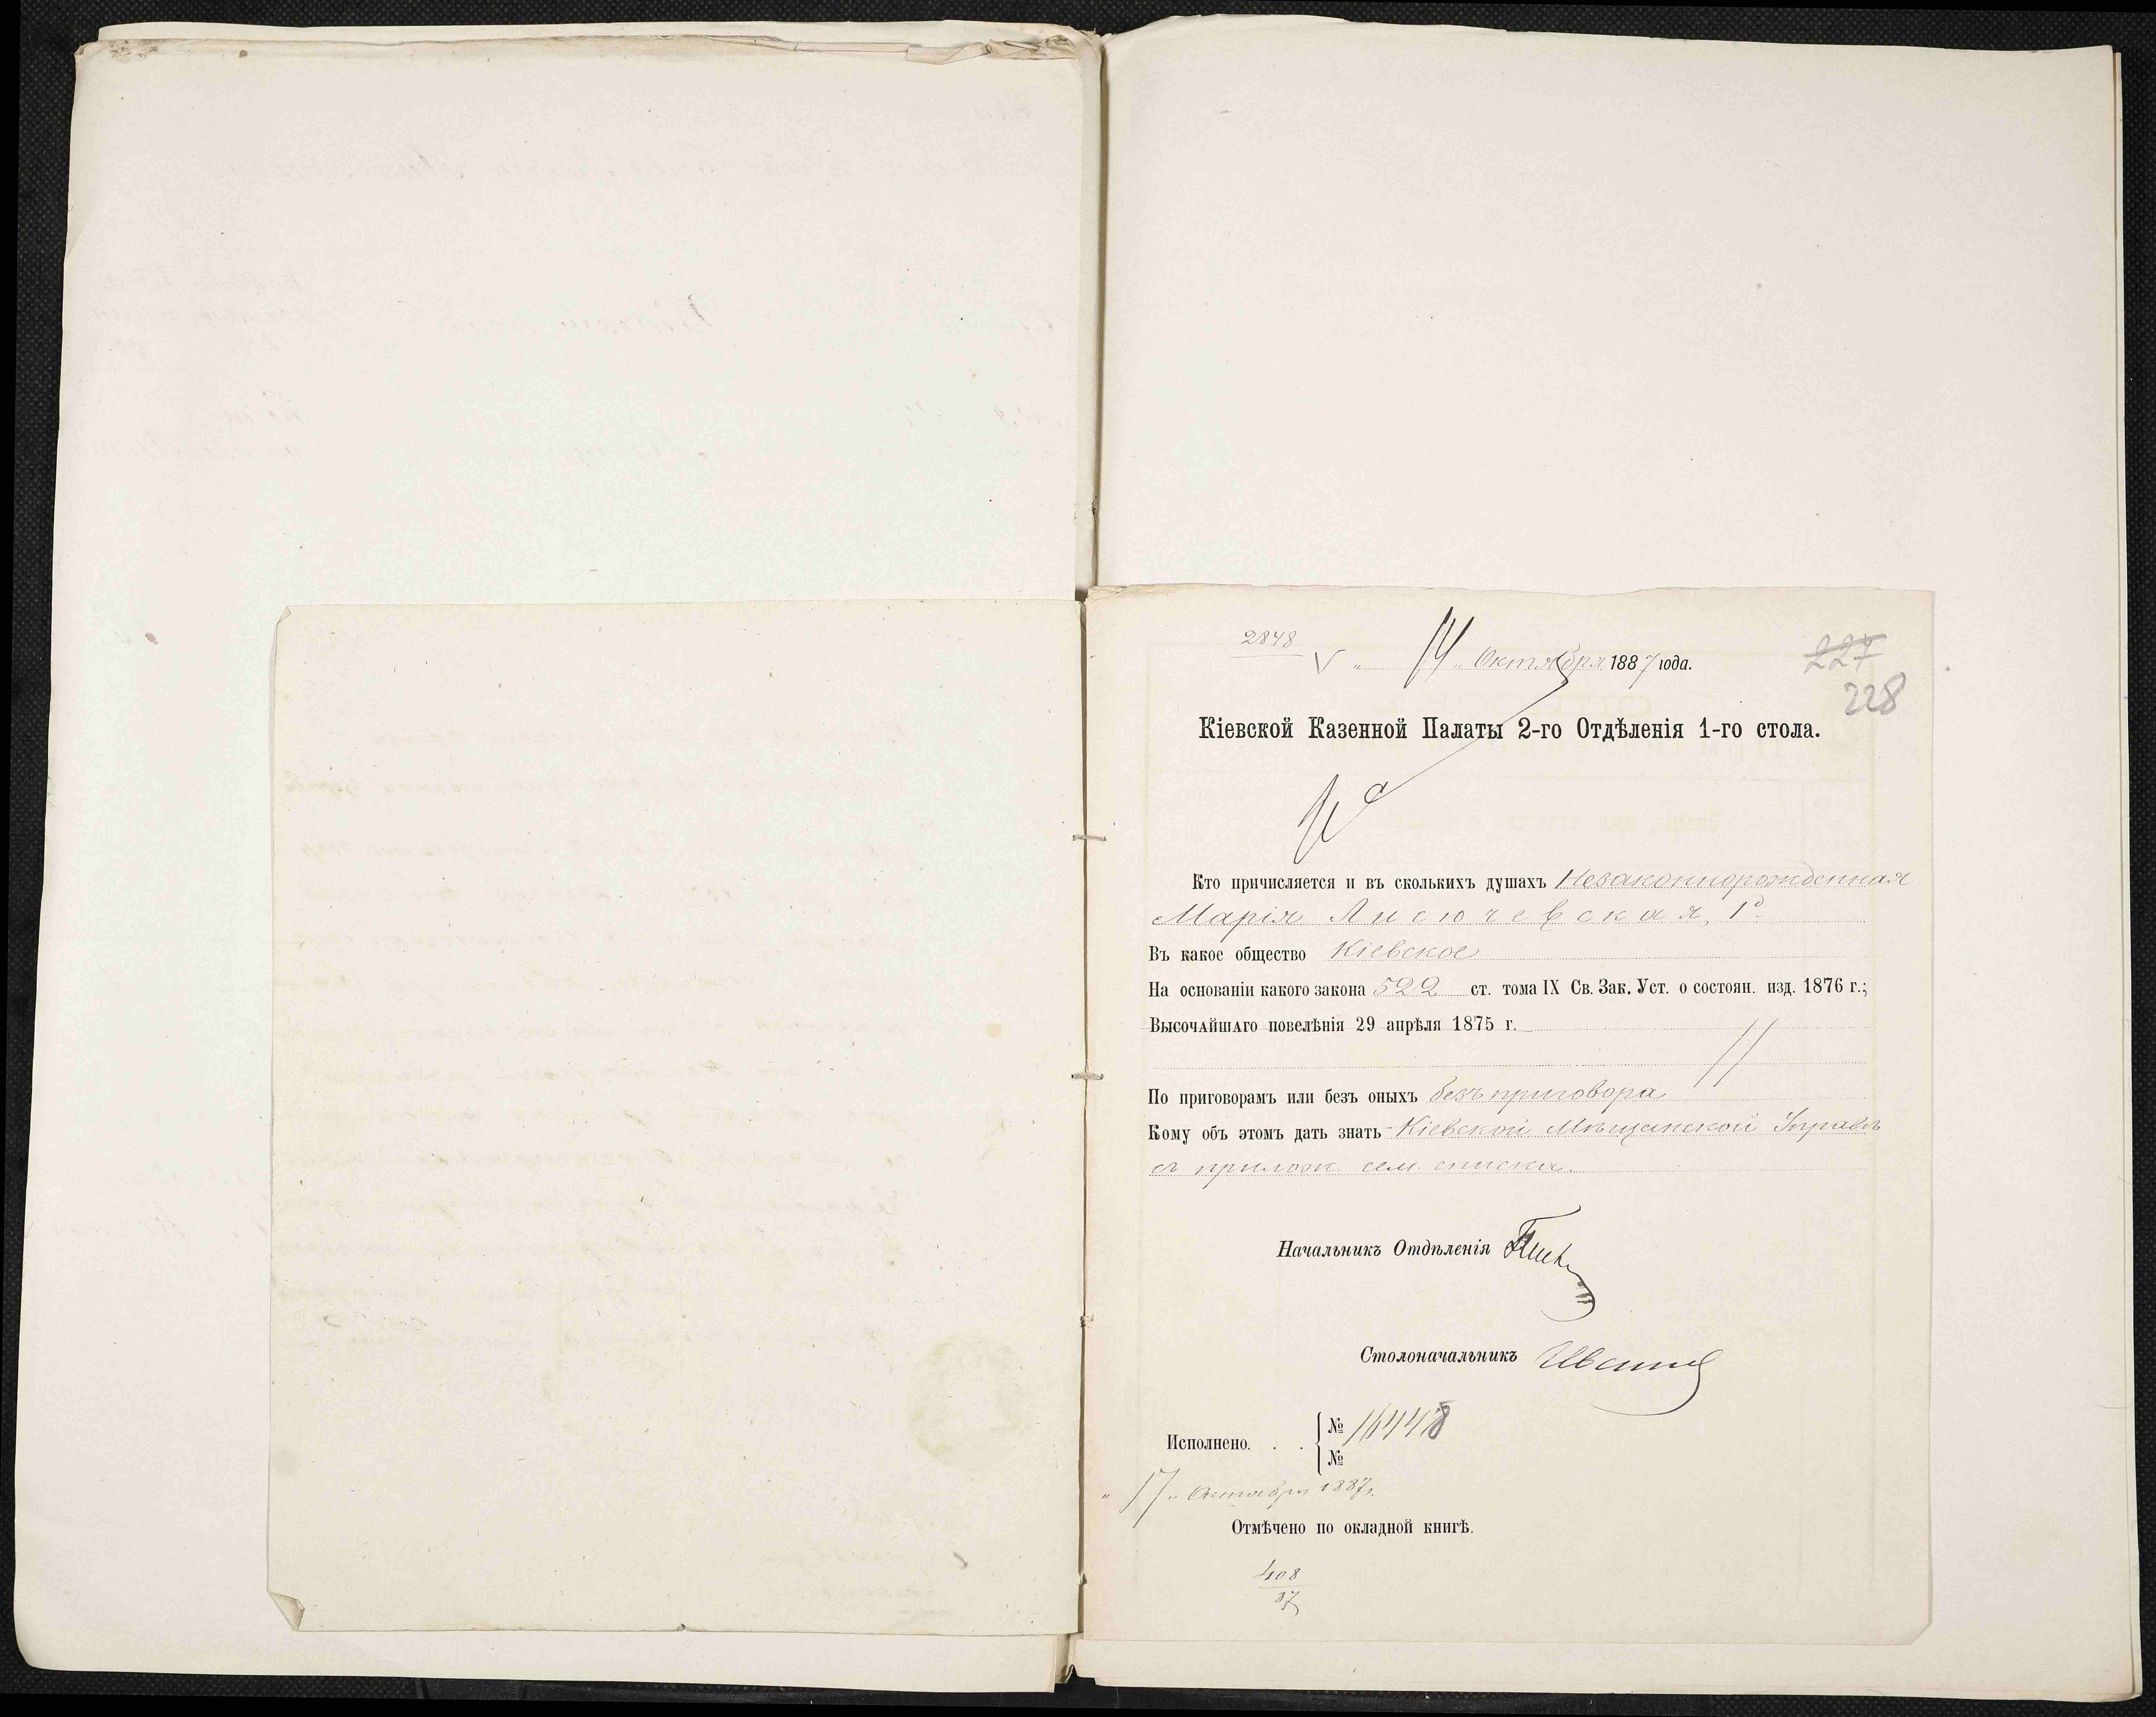 2848
V " 14 " Октября 1887 года.
227
228
Кіевской Казенной Палаты 2-го Отдѣленія 1-го стола.
Кто причисляется и въ сколькихъ душахъ Незаконнорожденная
Марія Лисючевская, 1
Въ какое общество Кіевское
На основаніи какого закона 522 ст. тома IX Св. Зак. Уст. о состоян. изд. 1876 г.;
Высочайшаго повелѣнія 29 апрѣля 1875 г.
По приговорамъ или безъ оныхъ безъ приговора
Кому объ этомъ дать знать Кіевской Мѣщанской Управѣ
съ прилож. сем. списка.
Начальникъ Отдѣленія
Столоначальникъ
Исполнено. . . № 16448
№
" 17 " Октября 1887 г.
Отмѣчено по окладной книгѣ.
408
37